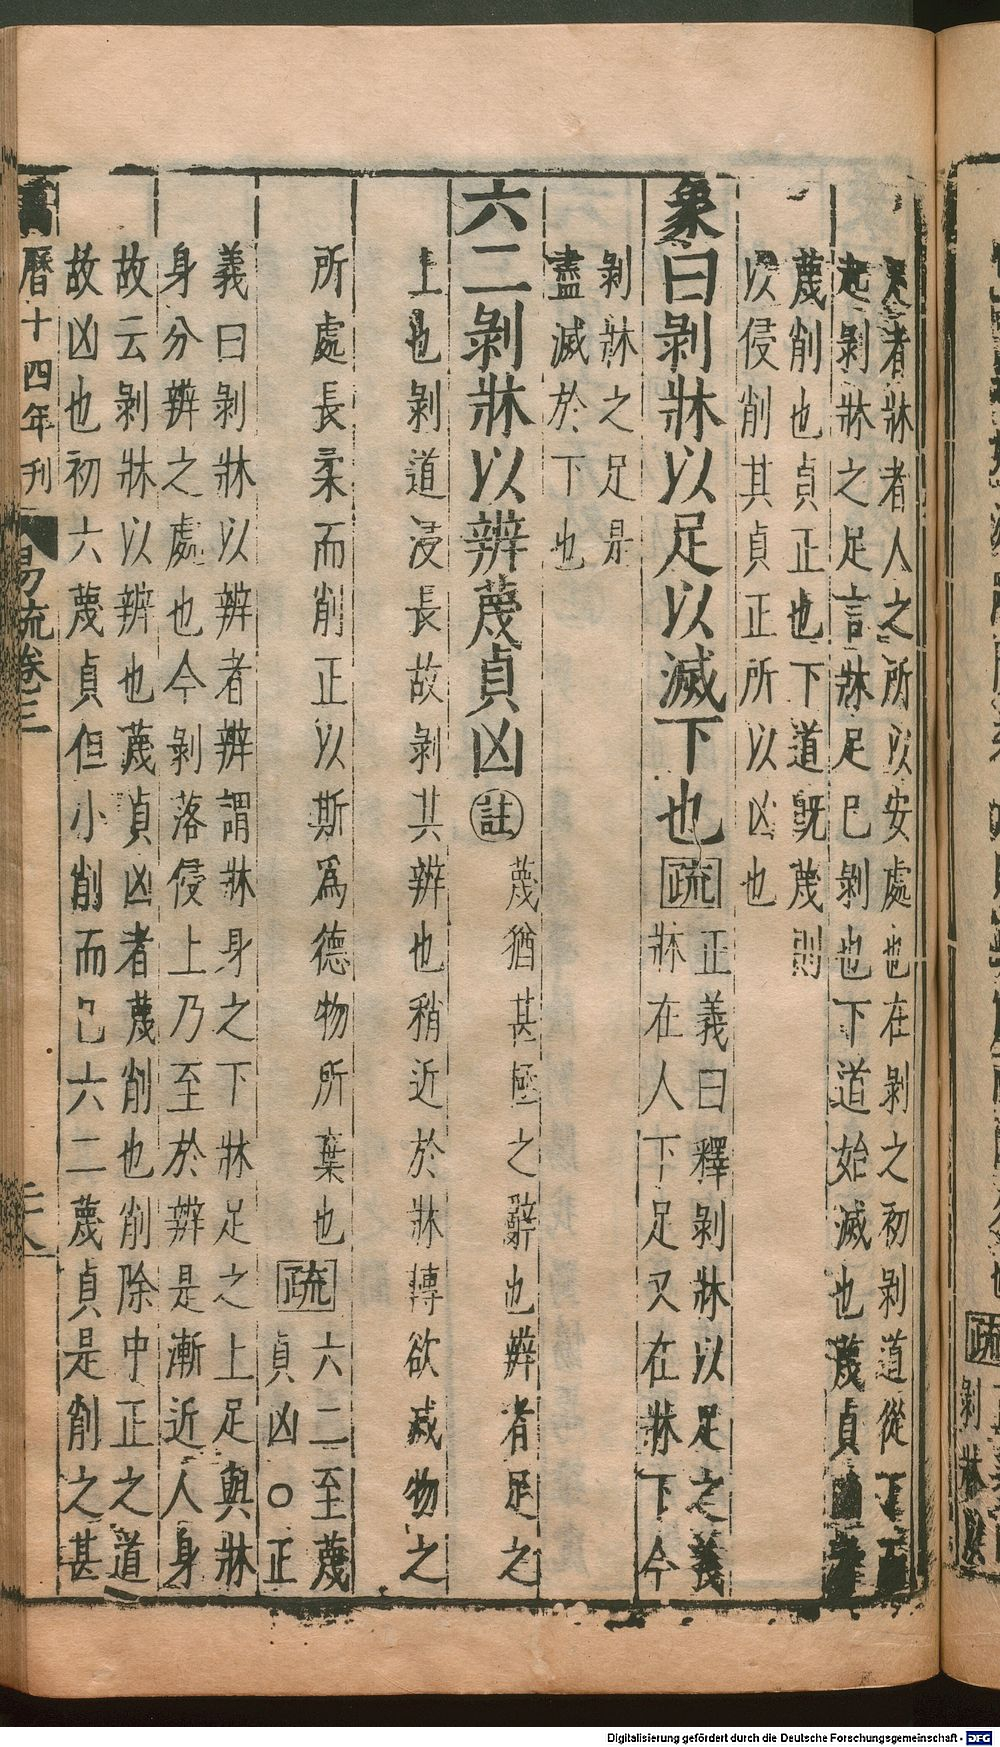 足者牀者人之所以安處也在剝之初剝道從下而
起剝牀之足言牀足巳剝也下道始滅也蔑貞凶者
蔑削也貞正也下道旣蔑則
以侵削其貞正所以凶也
象曰剝牀以足以滅下也疏正義曰釋剝牀以足之義
牀在人下足又在牀下今
剝牀之足是
盡滅於下也
六二剝牀以辨蔑貞凶註蔑猶甚極之辭也辨者足之
上也剝道浸長故剝其辨也稍近於牀轉欲滅物之
所處長柔而削正以斯爲德物所棄也疏六二至蔑
貞凶○正
義曰剝牀以辨者辨謂牀身之下牀足之上足與牀
身分辨之處也今剝落侵上乃至於辨是漸近人身
故云剝牀以辨也蔑貞凶者蔑削也削除中正之道
故凶也初六蔑貞但小削而巳六二蔑貞是削之甚
曆十四年刊 易疏卷三
疏
剝牀
Digitalisierung gefördert durch die Deutsche Forschungsgemeinschaft - DFG